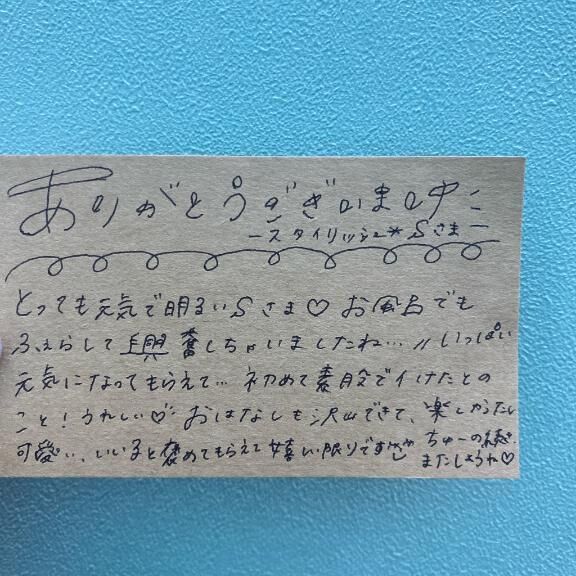 ありがとうございます
ースタイリッシュ*Sさまー
とっても元気で明るいSさま♡ お風呂でも
ふぇらして興奮しちゃいましたね…〃いっぱい
元気になってもらえて… 初めて素股でイけたとの
こと!うれしい♡ おはなしも沢山できて、楽しかったし
可愛い、いい子と褒めてもらえて嬉しい限りです
ちゅーの続き
またしようね♡